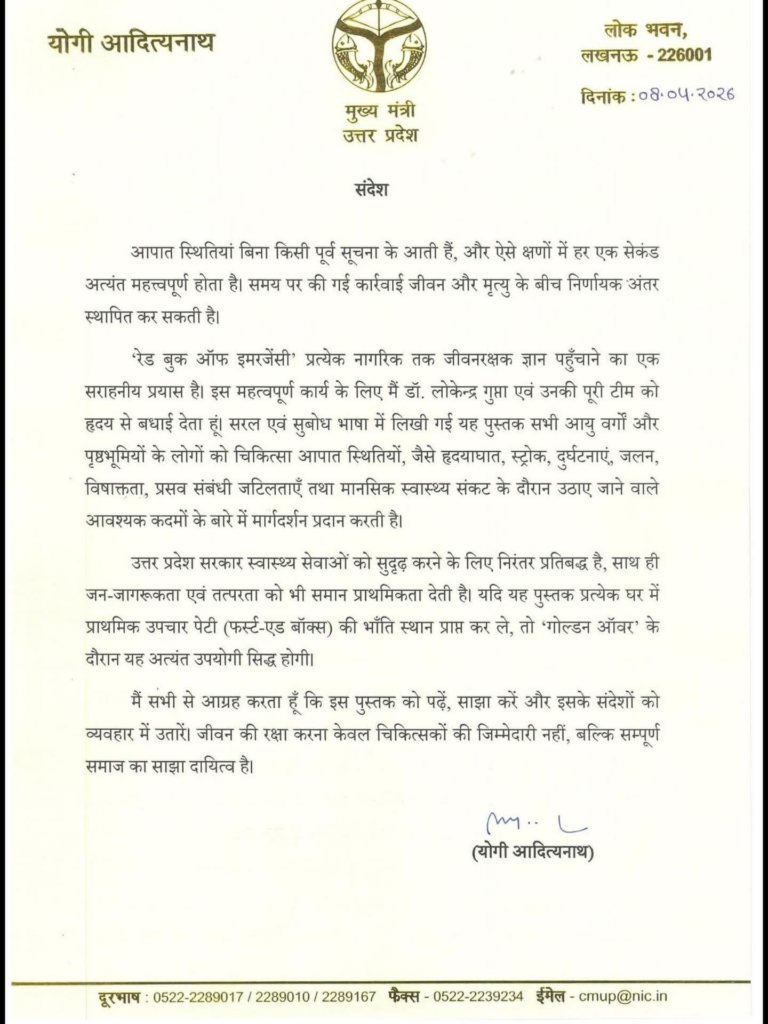 योगी आदित्यनाथ
मुख्य मंत्री
उत्तर प्रदेश
लोक भवन,
लखनऊ - 226001
दिनांक : 08.04.2026
संदेश
आपात स्थितियां बिना किसी पूर्व सूचना के आती हैं, और ऐसे क्षणों में हर एक सेकंड
अत्यंत महत्त्वपूर्ण होता है। समय पर की गई कार्रवाई जीवन और मृत्यु के बीच निर्णायक अंतर
स्थापित कर सकती है।
‘रेड बुक ऑफ इमरजेंसी’ प्रत्येक नागरिक तक जीवनरक्षक ज्ञान पहुँचाने का एक
सराहनीय प्रयास है। इस महत्वपूर्ण कार्य के लिए मैं डॉ. लोकेन्द्र गुप्ता एवं उनकी पूरी टीम को
हृदय से बधाई देता हूं। सरल एवं सुबोध भाषा में लिखी गई यह पुस्तक सभी आयु वर्गों और
पृष्ठभूमियों के लोगों को चिकित्सा आपात स्थितियों, जैसे हृदयाघात, स्ट्रोक, दुर्घटनाएं, जलन,
विषाक्तता, प्रसव संबंधी जटिलताएँ तथा मानसिक स्वास्थ्य संकट के दौरान उठाए जाने वाले
आवश्यक कदमों के बारे में मार्गदर्शन प्रदान करती है।
उत्तर प्रदेश सरकार स्वास्थ्य सेवाओं को सुदृढ़ करने के लिए निरंतर प्रतिबद्ध है, साथ ही
जन-जागरूकता एवं तत्परता को भी समान प्राथमिकता देती है। यदि यह पुस्तक प्रत्येक घर में
प्राथमिक उपचार पेटी (फर्स्ट-एड बॉक्स) की भाँति स्थान प्राप्त कर ले, तो ‘गोल्डन ऑवर’ के
दौरान यह अत्यंत उपयोगी सिद्ध होगी।
मैं सभी से आग्रह करता हूँ कि इस पुस्तक को पढ़ें, साझा करें और इसके संदेशों को
व्यवहार में उतारें। जीवन की रक्षा करना केवल चिकित्सकों की जिम्मेदारी नहीं, बल्कि सम्पूर्ण
समाज का साझा दायित्व है।
(योगी आदित्यनाथ)
दूरभाष : 0522-2289017 / 2289010 / 2289167 फैक्स - 0522-2239234 ईमेल - cmup@nic.in